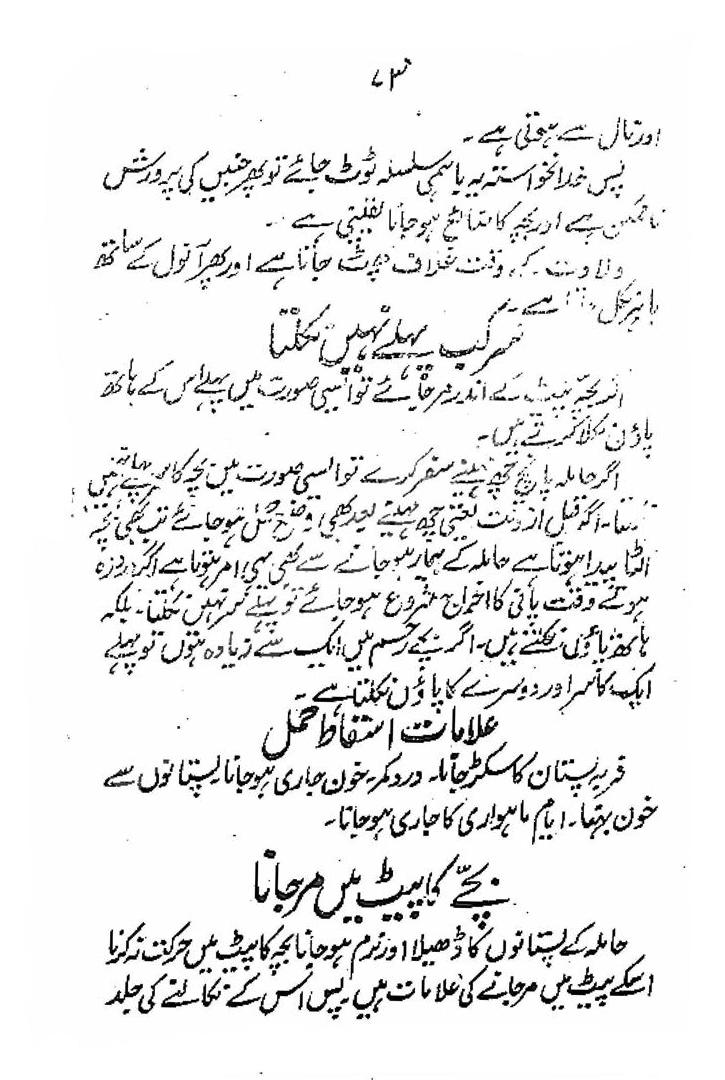 ۷۳
اور نال سے ہوتی ہے۔
پس خدانخواستہ یہ باہمی سلسلہ ٹوٹ جائے تو پھر جنین کی پرورش
ناممکن ہے اور بچہ کا ضائع ہو جانا یقینی ہے۔
ولادت کے وقت غلاف پھٹ جاتا ہے اور پھر آنول کے ساتھ
باہر نکل ہے۔
سر کب پہلے نہیں نکلتا
اگر بچہ پیٹ کے اندر مر جائے تو ایسی صورت میں پہلے اس کے ہاتھ
پاؤں نکلا کرتے ہیں۔
اگر حاملہ پانچ چھ مہینے سفر کرے تو ایسی صورت میں بچہ کا سر پہلے نہیں
اگر قبل از وقت یعنی چھ مہینے بعد کبھی وضع حمل ہو جائے تب بھی بچہ
الٹا پیدا ہوتا ہے حاملہ کے بیمار ہو جانے سے بھی یہی امر ہوتا ہے اگر دردزہ
ہوتے وقت پانی کا اخراج شروع ہو جائے تو پہلے سر نہیں نکلتا۔ بلکہ
ہاتھ پاؤں نکلتے ہیں۔ اگر بچے رحم میں ایک سے زیادہ ہوں تو پہلے
ایک کا سر اور دوسرے کا پاؤں نکلتا ہے۔
علامات اسقاط حمل
فربہ پستان کا سکڑ جانا۔ درد کمر۔ خون جاری ہو جانا پستانوں سے
خون بہنا۔ ایام ماہواری کا جاری ہو جانا۔
بچے کا پیٹ میں مر جانا
حاملہ کے پستانوں کا ڈھیلا اور نرم ہو جانا بچہ کا پیٹ میں حرکت نہ کرنا
اسکے پیٹ میں مر جانے کی علامات ہیں۔ پس اس کے نکالنے کی جلد